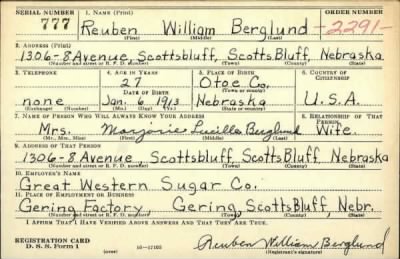 SERIAL NUMBER 1. NAME (Print) ORDER NUMBER
777 Reuben William Berglund 2291
(First) (Middle) (Last)
2. ADDRESS (Print)
1306-8 Avenue, Scottsbluff, ScottsBluff, Nebraska
(Number and street or R. F. D. number) (Town) (County) (State)
3. TELEPHONE 4. AGE IN YEARS 5. PLACE OF BIRTH 6. COUNTRY OF CITIZENSHIP
27 Otoe Co.
DATE OF BIRTH (Town or county)
none Jan. 6, 1913 Nebraska U.S.A.
(Exchange) (Number) (Mo.) (Day) (Yr.) (State or country)
7. NAME OF PERSON WHO WILL ALWAYS KNOW YOUR ADDRESS 8. RELATIONSHIP OF THAT PERSON
Mrs. Marjorie Lucille Berglund Wife.
(Mr., Mrs., Miss) (First) (Middle) (Last)
9. ADDRESS OF THAT PERSON
1306-8 Avenue, Scottsbluff, ScottsBluff, Nebraska
(Number and street or R. F. D. number) (Town) (County) (State)
10. EMPLOYER'S NAME
Great Western Sugar Co.
11. PLACE OF EMPLOYMENT OR BUSINESS
Gering Factory, Gering, ScottsBluff, Nebr.
(Number and street or R. F. D. number) (Town) (County) (State)
I AFFIRM THAT I HAVE VERIFIED ABOVE ANSWERS AND THAT THEY ARE TRUE.
REGISTRATION CARD
D. S. S. Form 1 (over) 16-17105 Reuben William Berglund
(Registrant's signature)